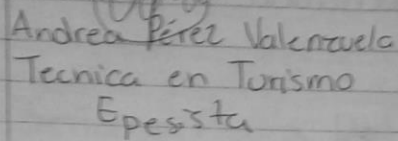 Andrea Pérez Valenzuela
Tecnica en Turismo
Epesista